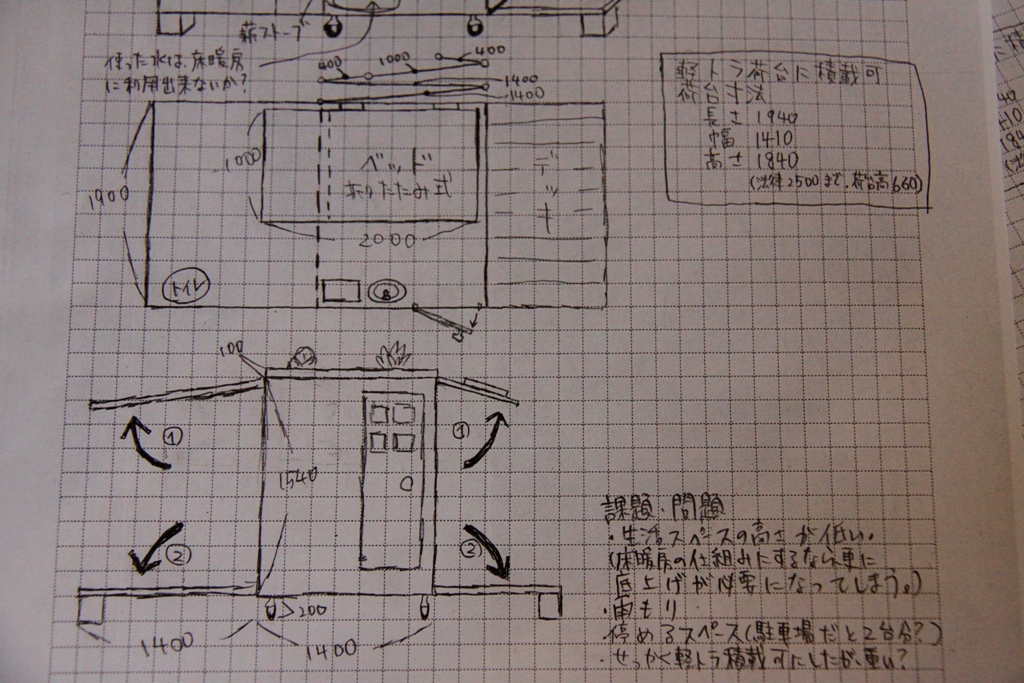 薪ストーブ
使った水は、床暖房
に利用出来ないか?
400
1000
400
1400
1400
軽トラ荷台に積載可
荷台寸法
長さ 1940
幅 1410
高さ 1840
(法律2500まで、荷台高660)
1900
1000
ベッド
折りたたみ式
2000
デッキ
トイレ
100
①
①
1540
②
②
>200
1400
1400
課題・問題
・生活スペースの高さが低い。
(床暖房の仕組みにするなら更に
底上げが必要になってしまう。)
・雨もり
・停めるスペース(駐車場だと2台分?)
・せっかく軽トラ積載可にしたが、重い?